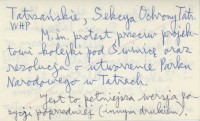 Tatrzańskie, Sekcja Ochrony Tatr.
WHP
M.in. protest przeciw projek-
towi kolejki pod Świnicę oraz
rezolucja o utworzenie Parku
Narodowego w Tatrach.
Jest to pełniejsza wersja po-
zycji poprzedniej (innym drukiem).